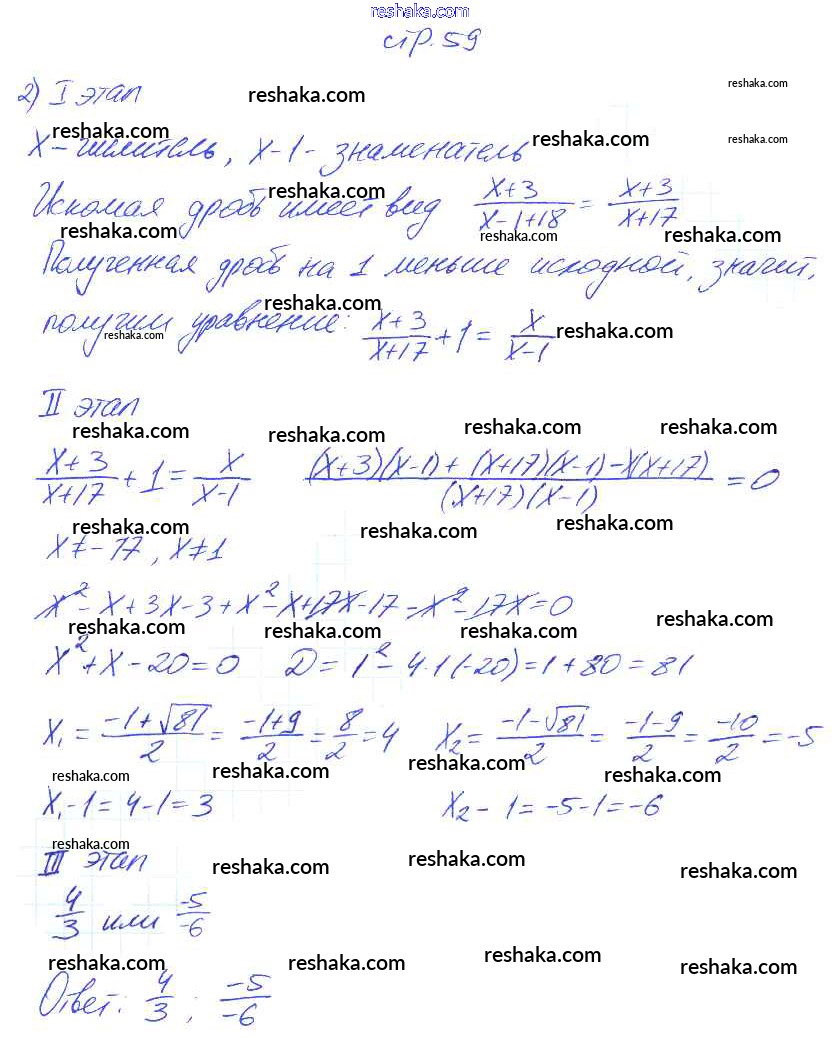 reshaka.com
стр. 59
2) I этап
reshaka.com
reshaka.com
reshaka.com
reshaka.com
reshaka.com
x – числитель, x-1 - знаменатель
reshaka.com
Искомая дробь имеет вид (x+3)/(x-1+18) = (x+3)/(x+17)
reshaka.com
reshaka.com
reshaka.com
Полученная дробь на 1 меньше исходной, значит,
reshaka.com
получим уравнение: (x+3)/(x+17) + 1 = x/(x-1)
reshaka.com
reshaka.com
II этап
reshaka.com
reshaka.com
reshaka.com
reshaka.com
(x+3)/(x+17) + 1 = x/(x-1) ((x+3)(x-1) + (x+17)(x-1) - x(x+17))/((x+17)(x-1)) = 0
reshaka.com
reshaka.com
reshaka.com
x ≠ -17, x ≠ 1
x² - x + 3x - 3 + x² - x + 17x - 17 - x² - 17x = 0
reshaka.com
reshaka.com
reshaka.com
reshaka.com
x² + x - 20 = 0 D = 1² - 4·1(-20) = 1 + 80 = 81
x₁ = (-1+√81)/2 = (-1+9)/2 = 8/2 = 4 x₂ = (-1-√81)/2 = (-1-9)/2 = -10/2 = -5
reshaka.com
reshaka.com
reshaka.com
reshaka.com
x₁ - 1 = 4 - 1 = 3 x₂ - 1 = -5 - 1 = -6
reshaka.com
III этап
reshaka.com
reshaka.com
reshaka.com
4/3 или -5/-6
reshaka.com
reshaka.com
reshaka.com
reshaka.com
Ответ: 4/3 ; -5/-6